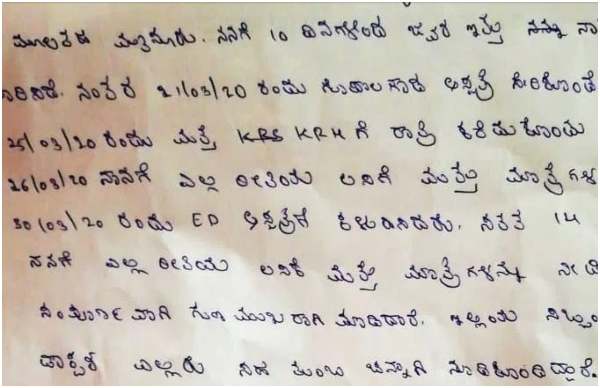 ಮೂಲತಹ ಮೈಸೂರು. ನನಗೆ 10 ದಿನಗಳಿಂದ ಜ್ವರ ಇತ್ತು ನನ್ನು
ನಂತರ 21/03/20 ರಂದು ಗೋಪಾಲಗೌಡ ಆಸ್ಪತ್ರೆ ಸೇರಿಕೊಂಡೆ
25/03/20 ರಂದು ಮತ್ತೆ KRS KRH ಗೆ ರಾತ್ರಿ ಕರೆದುಕೊಂಡು
26/03/20 ನಾನಗೆ ಎಲ್ಲ ರೀತಿಯ ಊಟ ಮತ್ತು ಮಾತ್ರೆಗಳ
30/03/20 ರಂದು ED ಆಸ್ಪತ್ರೆಗೆ ಕಳುಹಿಸಿದರು. 14
ನನಗೆ ಎಲ್ಲ ರೀತಿಯ ಮತ್ತೆ ಮಾತ್ರೆಗಳನ್ನು ನೀಡಿ
ಸಂಪೂರ್ಣವಾಗಿ ಗುಣಮುಖರಾಗಿ ಮಾಡಿದಾರೆ. ಇಲ್ಲಿಯ
ಡಾಕ್ಟರ್ ಎಲ್ಲರು ಸಹ ತುಂಬ ಚೆನ್ನಾಗಿ ನೋಡಿಕೊಂಡಿದ್ದಾರೆ.